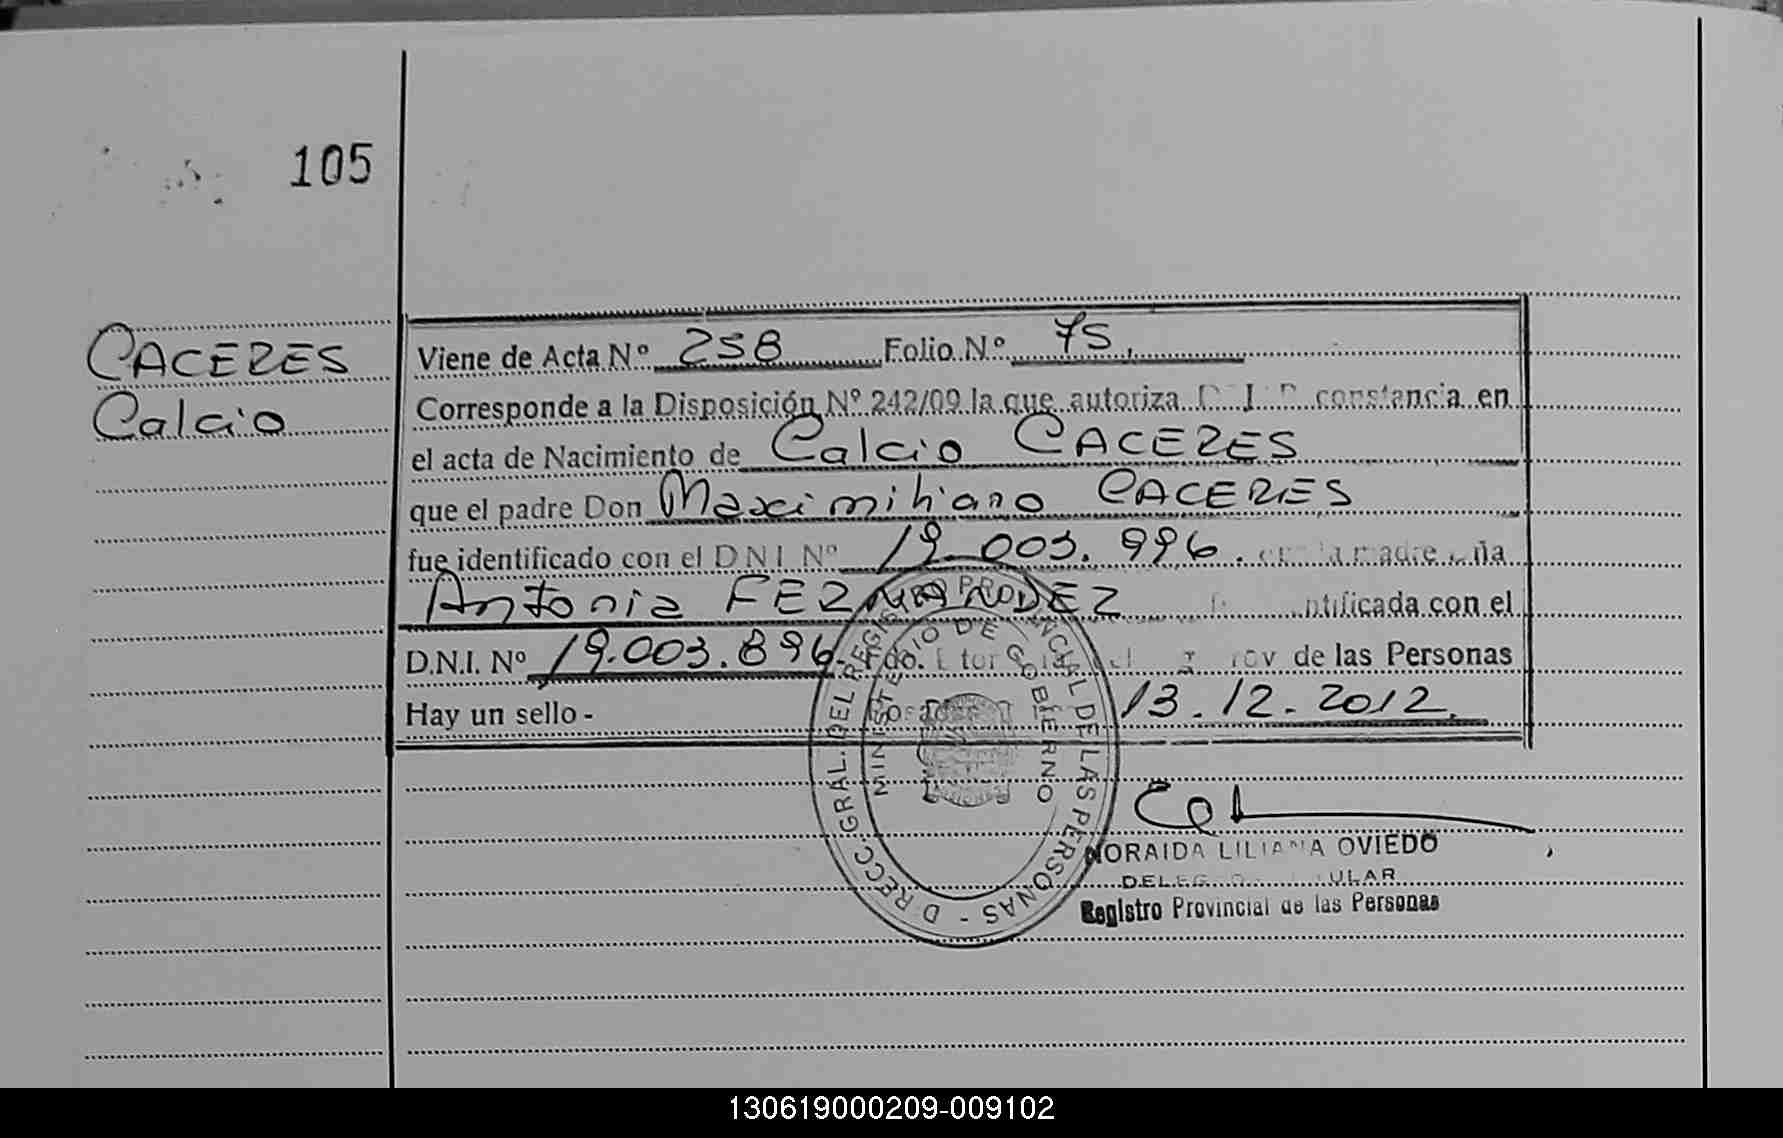 105
CACERES
Calcio
Viene de Acta Nº 258 Folio Nº 75.
Corresponde a la Disposición Nº 242/09 la que autoriza constancia en
el acta de Nacimiento de Calcio CACERES
que el padre Don Maximiliano CACERES
fue identificado con el D N I Nº 19.003.996. la madre
Antonia FERNANDEZ identificada con el
D.N.I. Nº 19.003.896. de las Personas
Hay un sello - 13.12.2012.
DIRECC. GRAL. DEL REGISTRO PROVINCIAL DE LAS PERSONAS -
MINISTERIO DE GOBIERNO
NORAIDA LILIANA OVIEDO
Registro Provincial de las Personas
130619000209-009102